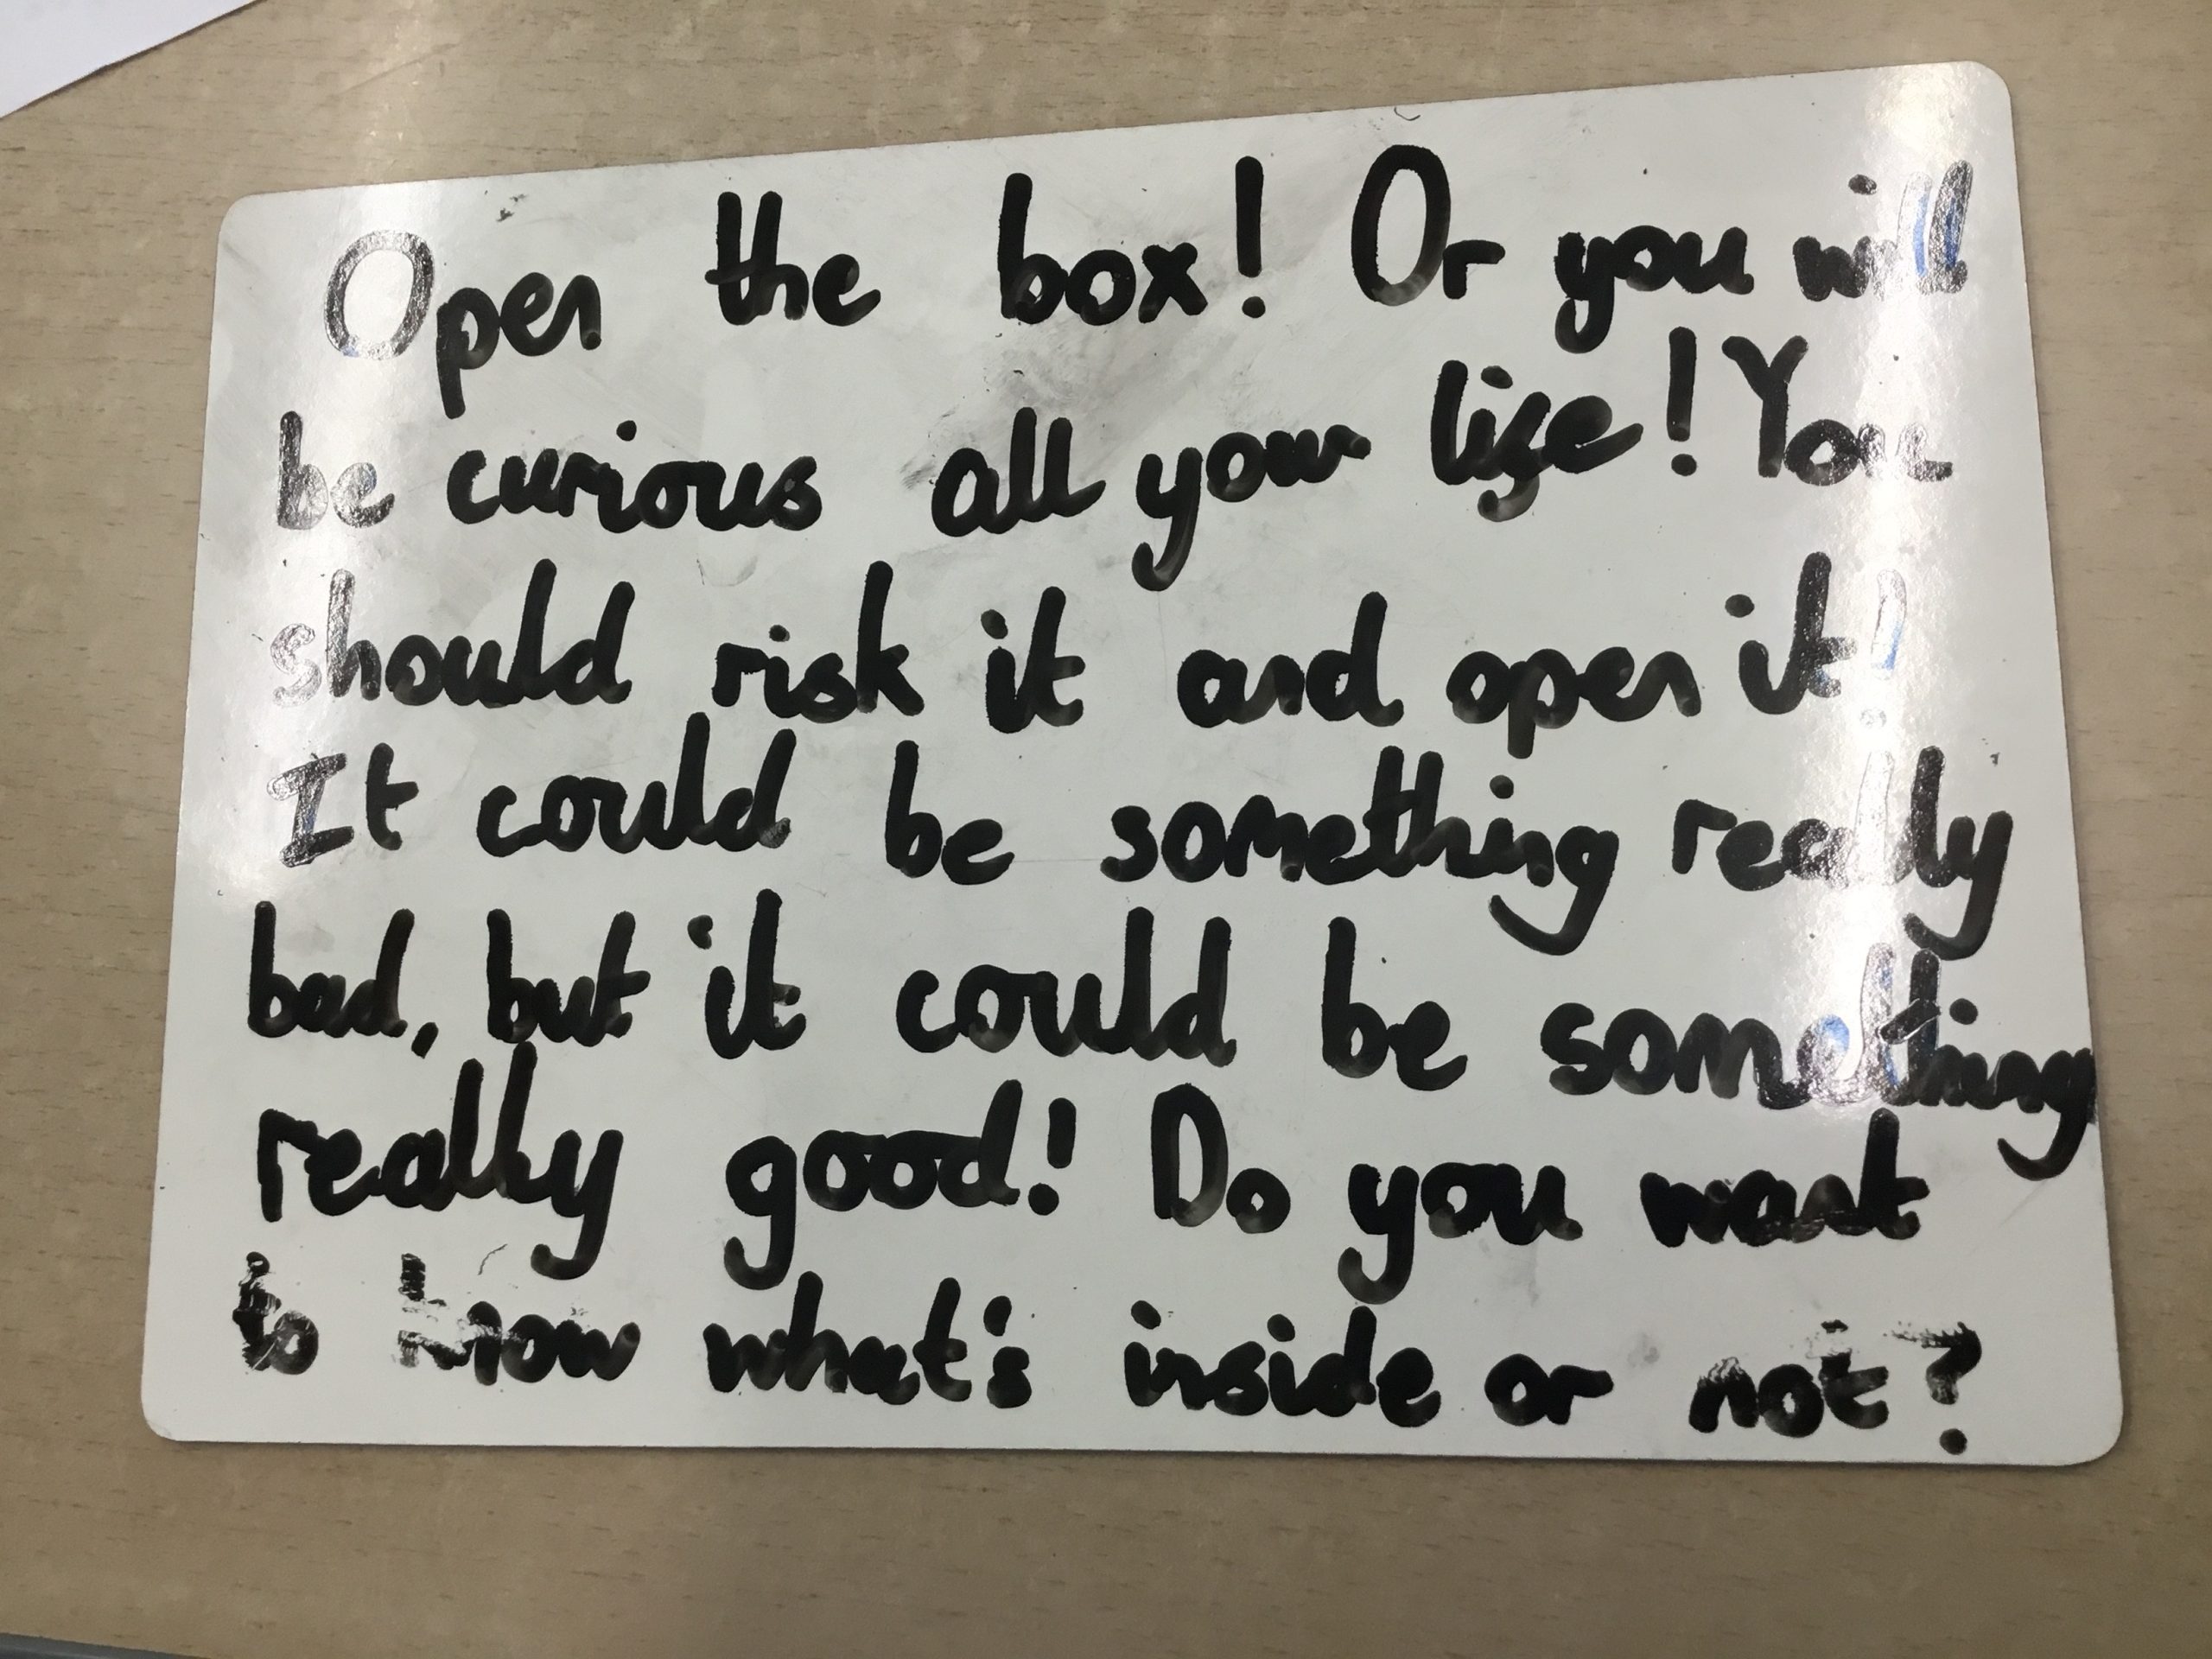 Open the box! Or you will
be curious all your life! You
should risk it and open it!
It could be something really
bad, but it could be something
really good! Do you want
to know what's inside or not?